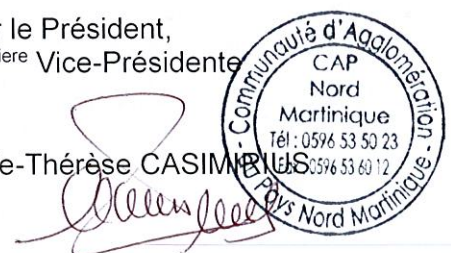 r le Président,
iere Vice-Présidente
e-Thérèse CASIMIRIUS
Communauté d'Agglomération
CAP
Nord
Martinique
Tél : 0596 53 50 23
0596 53 60 12
Pays Nord Martinique